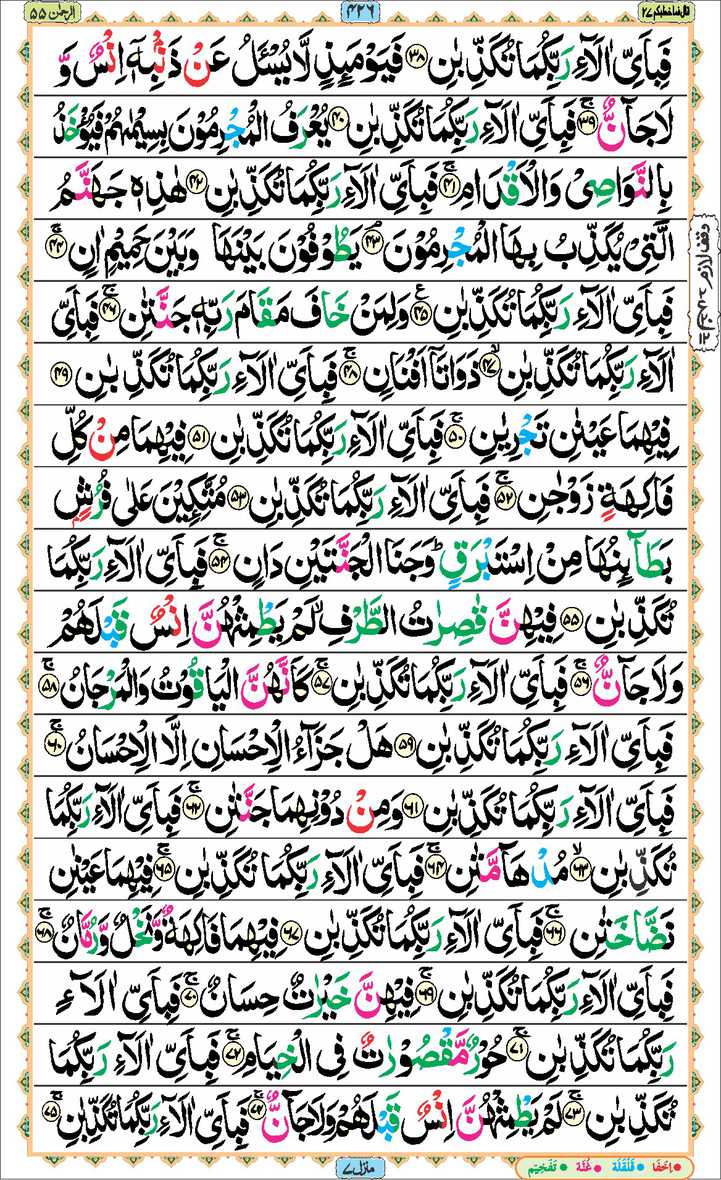 قال فما خطبکم ۲۷
۴۲۶
الرحمٰن ۵۵
فَبِاَیِّ اٰلَآءِ رَبِّکُمَا تُکَذِّبٰنِ ۝۳۸ فَیَوْمَئِذٍ لَّا یُسْـَٔلُ عَنْ ذَنْۢبِهٖۤ اِنْسٌ وَّ
لَا جَآنٌّ ۝۳۹ۚ فَبِاَیِّ اٰلَآءِ رَبِّکُمَا تُکَذِّبٰنِ ۝۴۰ یُعْرَفُ الْمُجْرِمُوْنَ بِسِیْمٰىهُمْ فَیُؤْخَذُ
بِالنَّوَاصِیْ وَالْاَقْدَامِ ۝۴۱ۚ فَبِاَیِّ اٰلَآءِ رَبِّکُمَا تُکَذِّبٰنِ ۝۴۲ هٰذِهٖ جَهَنَّمُ
الَّتِیْ یُکَذِّبُ بِهَا الْمُجْرِمُوْنَ ۝۴۳ۘ یَطُوْفُوْنَ بَیْنَهَا وَبَیْنَ حَمِیْمٍ اٰنٍ ۝۴۴ۚ
فَبِاَیِّ اٰلَآءِ رَبِّکُمَا تُکَذِّبٰنِ ۝۴۵ۧ وَلِمَنْ خَافَ مَقَامَ رَبِّهٖ جَنَّتٰنِ ۝۴۶ۚ فَبِاَیِّ
اٰلَآءِ رَبِّکُمَا تُکَذِّبٰنِ ۝۴۷ۙ ذَوَاتَاۤ اَفْنَانٍ ۝۴۸ۚ فَبِاَیِّ اٰلَآءِ رَبِّکُمَا تُکَذِّبٰنِ ۝۴۹
فِیْهِمَا عَیْنٰنِ تَجْرِیٰنِ ۝۵۰ۚ فَبِاَیِّ اٰلَآءِ رَبِّکُمَا تُکَذِّبٰنِ ۝۵۱ فِیْهِمَا مِنْ کُلِّ
فَاکِهَةٍ زَوْجٰنِ ۝۵۲ۚ فَبِاَیِّ اٰلَآءِ رَبِّکُمَا تُکَذِّبٰنِ ۝۵۳ مُتَّکِـِٕیْنَ عَلٰی فُرُشٍۭ
بَطَآىِٕنُهَا مِنْ اِسْتَبْرَقٍ ؕ وَجَنَا الْجَنَّتَیْنِ دَانٍ ۝۵۴ۚ فَبِاَیِّ اٰلَآءِ رَبِّکُمَا
تُکَذِّبٰنِ ۝۵۵ فِیْهِنَّ قٰصِرٰتُ الطَّرْفِ ۙ لَمْ یَطْمِثْهُنَّ اِنْسٌ قَبْلَهُمْ
وَلَا جَآنٌّ ۝۵۶ۚ فَبِاَیِّ اٰلَآءِ رَبِّکُمَا تُکَذِّبٰنِ ۝۵۷ۚ کَاَنَّهُنَّ الْیَاقُوْتُ وَالْمَرْجَانُ ۝۵۸ۚ
فَبِاَیِّ اٰلَآءِ رَبِّکُمَا تُکَذِّبٰنِ ۝۵۹ هَلْ جَزَآءُ الْاِحْسَانِ اِلَّا الْاِحْسَانُ ۝۶۰ۚ
فَبِاَیِّ اٰلَآءِ رَبِّکُمَا تُکَذِّبٰنِ ۝۶۱ وَمِنْ دُوْنِهِمَا جَنَّتٰنِ ۝۶۲ۚ فَبِاَیِّ اٰلَآءِ رَبِّکُمَا
تُکَذِّبٰنِ ۝۶۳ۙ مُدْهَآمَّتٰنِ ۝۶۴ۚ فَبِاَیِّ اٰلَآءِ رَبِّکُمَا تُکَذِّبٰنِ ۝۶۵ۚ فِیْهِمَا عَیْنٰنِ
نَضَّاخَتٰنِ ۝۶۶ۚ فَبِاَیِّ اٰلَآءِ رَبِّکُمَا تُکَذِّبٰنِ ۝۶۷ فِیْهِمَا فَاکِهَةٌ وَّنَخْلٌ وَّرُمَّانٌ ۝۶۸ۚ
فَبِاَیِّ اٰلَآءِ رَبِّکُمَا تُکَذِّبٰنِ ۝۶۹ۚ فِیْهِنَّ خَیْرٰتٌ حِسَانٌ ۝۷۰ۚ فَبِاَیِّ اٰلَآءِ
رَبِّکُمَا تُکَذِّبٰنِ ۝۷۱ۚ حُوْرٌ مَّقْصُوْرٰتٌ فِی الْخِیَامِ ۝۷۲ۚ فَبِاَیِّ اٰلَآءِ رَبِّکُمَا
تُکَذِّبٰنِ ۝۷۳ۚ لَمْ یَطْمِثْهُنَّ اِنْسٌ قَبْلَهُمْ وَلَا جَآنٌّ ۝۷۴ۚ فَبِاَیِّ اٰلَآءِ رَبِّکُمَا تُکَذِّبٰنِ ۝۷۵ۚ
منزل ۷
اِخفَا قَلْقَلَة غُنَّة تَفْخِیْم
وقف لازم